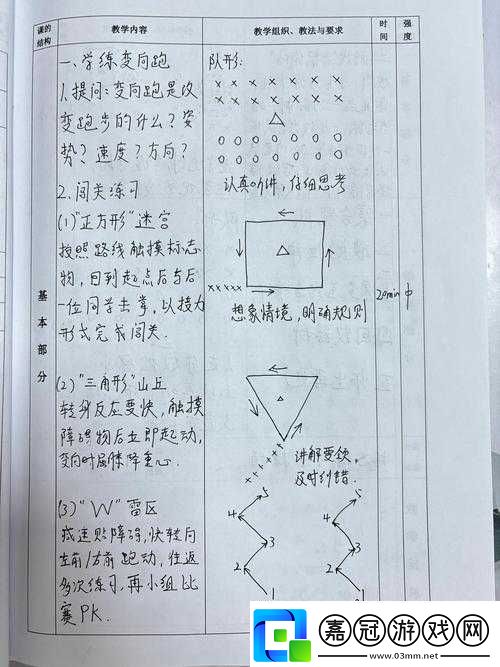 课的结构 教学内容 教学组织、教法与要求 时间 强度
一、学练变向跑
1.提问:变向跑是改
变跑步的什么?姿
势?速度?方向?
2.闯关练习
(1)"正方形"迷宫
按照路线触摸标志
物,回到起点后与后
一位同学击掌,以接力
形式完成闯关.
(2)"三角形"山丘
转身反应要快,触摸
障碍物后立即起动,
变向时屈膝降重心.
(3)"W"雷区
减速贴障碍,快转向
左前/右前跑动,往返
多次练习,再小组比
赛PK.
基本部分
队形:
× × × × × × ×
× × × × × × ×
○ ○ ○ ○ ○ ○ ○
○ ○ ○ ○ ○ ○ ○
认真听讲,仔细思考
×××××
想象情境,明确规则
20min 中
××××××
讲解要领,
及时纠错.
5 5
4 4
3 3
2 2
1 1
嘉冠游戏网
www.03mm.net